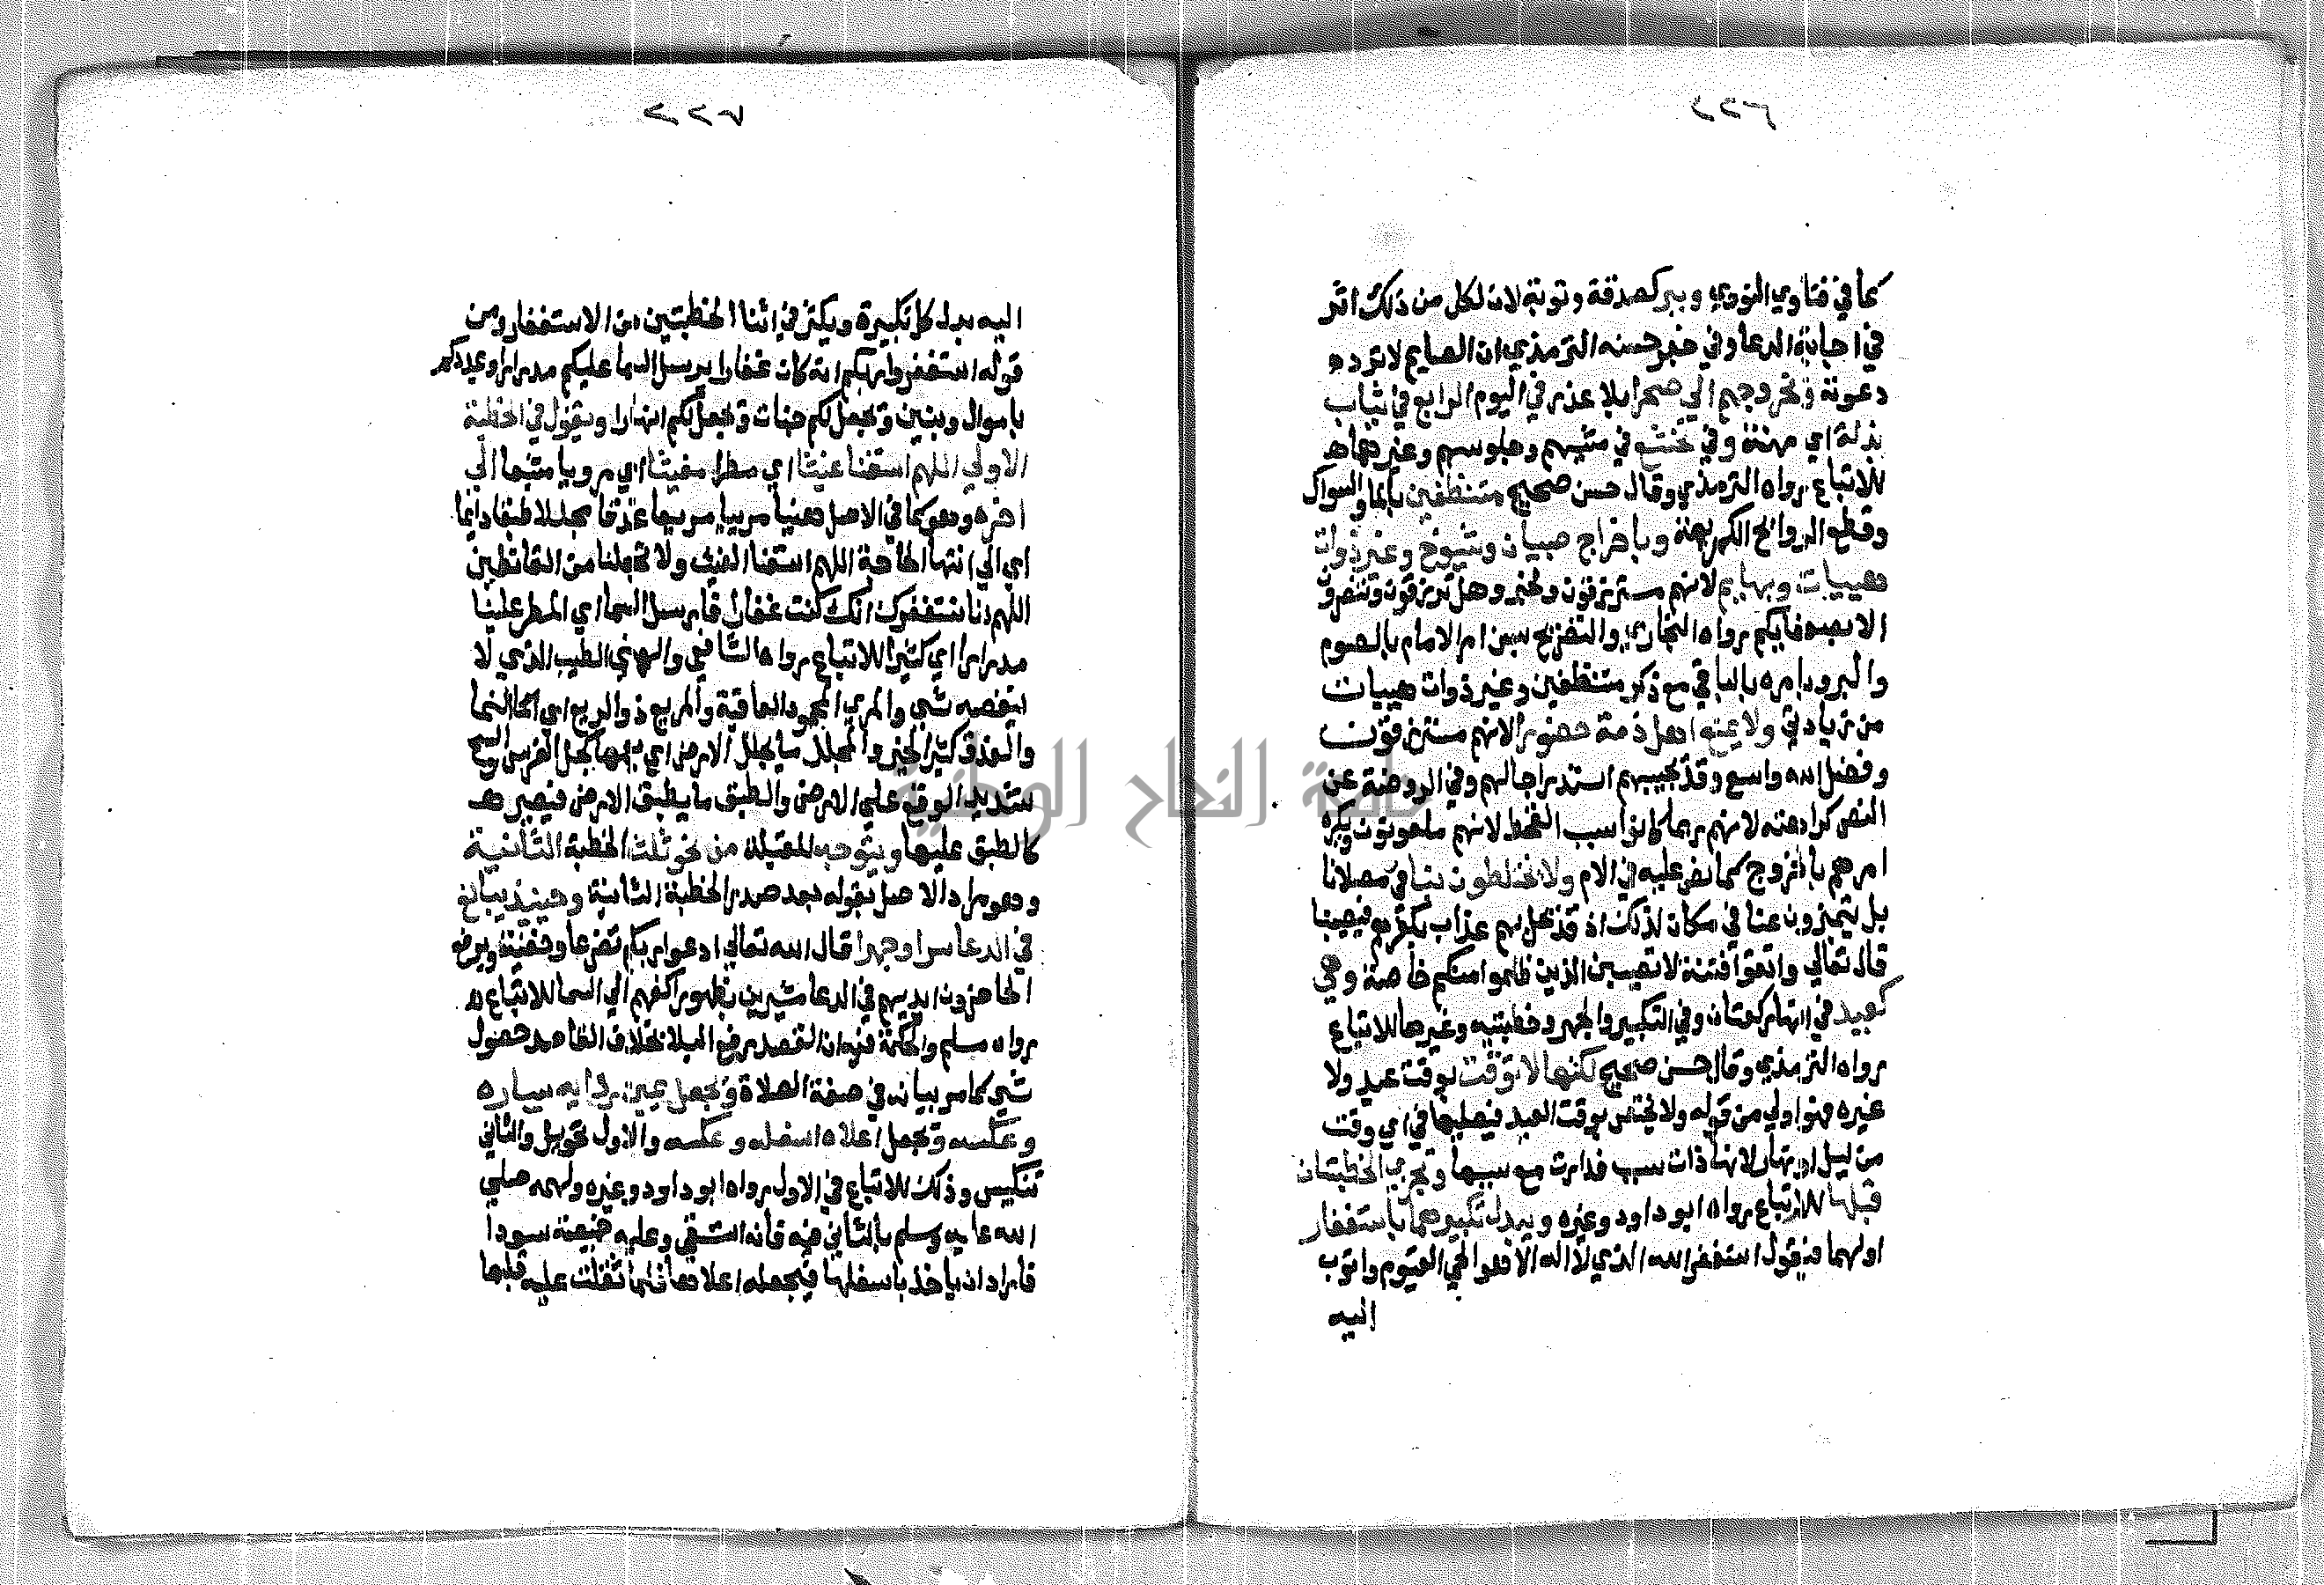 ٢٢٦
كما في فتاوي النووي وببر كصدقة وتوبة لان لكل من ذلك اثر
في اجابة الدعا وفي خبر حسنه الترمذي ان الصايم لا ترد
دعوته وبخروجهم الي صحرا بلا عذر في اليوم الرابع في ثياب
بذلة اي مهنة وفي تخشع في مشيهم وجلوسهم وغيرهما
للاتباع رواه الترمذي وقال حسن صحيح متنظفين بالما والسواك
وقطع الروايح الكريهة وباخراج صبيان وشيوخ وغير ذوات
هيبات وبهايم لانهم مسترزقون ولخبر وهل ترزقون وتنصرون
الا بضعفايكم رواه البخاري والتصريح بسن امر الامام بالصوم
والبر وبامره بالباقي مع ذكر متنظفين وغير ذوات هيبات
من زيادتي ولا يمنع اهل ذمة حضورا لانهم مسترزقون
وفضل الله واسع وقد يجيبهم استدراجا لهم وفي الروضة عن
النص كراهته لانهم ربما كانوا سبب القحط لانهم ملعونون ويكره
امرهم بالخروج كما نص عليه في الام ولا يختلطون بنا في مصلانا
بل يتميزون عنا في مكان لذلك اذ قد يحل بهم عذاب بكفرهم فيصيبنا
قال تعالي واتقوا فتنة لا تصيبن الذين ظلموا منكم خاصة وهي
كعيد في انها ركعتان وفي التكبير والجهر وخطبتيه وغيرها للاتباع
رواه الترمذي وقال حسن صحيح لكنها لا توقت بوقت عيد ولا
غيره فهو اولي من قوله ولا تختص بوقت العيد فيصليها في اي وقت
من ليل او نهار لانها ذات سبب فدارت مع سببها وتجزي الخطبتان
قبلها للاتباع رواه ابو داود وغيره ويبدل تكبيرهما باستغفار
اولهما فيقول استغفر الله الذي لا اله الا هو الحي القيوم واتوب
اليه
٢٢٧
اليه بدل كل تكبيرة ويكثر في اثنا الخطبتين من الاستغفار ومن
قوله استغفروا ربكم انه كان غفارا يرسل السما عليكم مدرارا ويمددكم
باموال وبنين ويجعل لكم جنات ويجعل لكم انهارا ويقول في الخطبة
الاولي اللهم اسقنا غيثا اي مطرا مغيثا اي مرويا مشبعا الي
اخره وهو كما في الاصل هنيا مريا مريعا غدقا مجللا طبقا دايما
اي الي انتها الحاجة اللهم اسقنا الغيث ولا تجعلنا من القانطين
اللهم انا نستغفرك انك كنت غفارا فارسل السما اي المطر علينا
مدرارا اي كثيرا للاتباع رواه الشافعي والهني الطيب الذي لا
ينغصه شي والمري المحمود العاقبة والمريع ذو الريع اي النما
والغدق كثير الخير والمجلل ما يجلل الارض اي يعمها كجل الفرس والسح
شديد الوقع علي الارض والطبق ما يطبق الارض فيصير
كالطبق عليها ويتوجه للقبلة من نحو ثلث الخطبة الثانية
وهو مراد الاصل بقوله بعد صدر الخطبة الثانية وحينيذ يبالغ
في الدعا سرا وجهرا قال الله تعالي ادعوا ربكم تضرعا وخفية ويرفع
الحاضرون ايديهم في الدعا مشيرين بظهور اكفهم الي السما للاتباع
رواه مسلم والحكمة فيه ان القصد رفع البلا بخلاف القاصد حصول
شي كما مر بيانه في صفة الصلاة ويجعل يمين ردايه يساره
وعكسه ويجعل اعلاه اسفله وعكسه والاول تحويل والثاني
تنكيس وذلك للاتباع في الاول رواه ابو داود وغيره ولهمه صلي
الله عليه وسلم بالثاني فيه فانه استسقي وعليه خميصة سودا
فاراد ان ياخذ باسفلها فيجعله اعلاها فلما ثقلت عليه قلبها
جامعة النجاح الوطنية